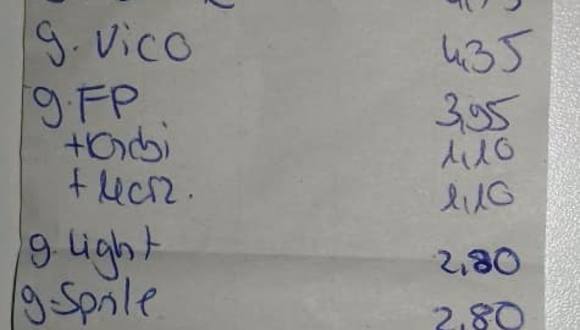 g. Vico 4,35
g. FP 3,95
+ 1,10
+ 1,10
g. Light 2,80
g. Sprite 2,80